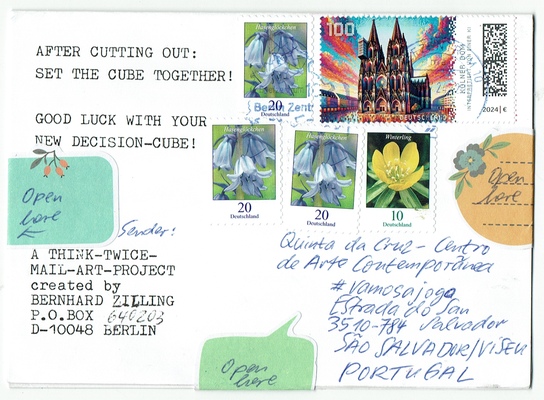 AFTER CUTTING OUT:
SET THE CUBE TOGETHER!
GOOD LUCK WITH YOUR
NEW DECISION-CUBE!
Hasenglöckchen
20
Deutschland
100
KÖLNER DOM
DEUTSCHLAND
2024 | €
Berlin Zent
Hasenglöckchen
20
Deutschland
Hasenglöckchen
20
Deutschland
Winterling
10
Deutschland
Open
here
Open
here
Sender:
A THINK-TWICE-
MAIL-ART-PROJECT
created by
BERNHARD ZILLING
P.O.BOX 640203
D-10048 BERLIN
Quinta da Cruz - Centro
de Arte Contemporânea
#vamosajogo
Estrada do San
3510-784 Salvador
SÃO SALVADOR/VISEU
PORTUGAL
Open
here